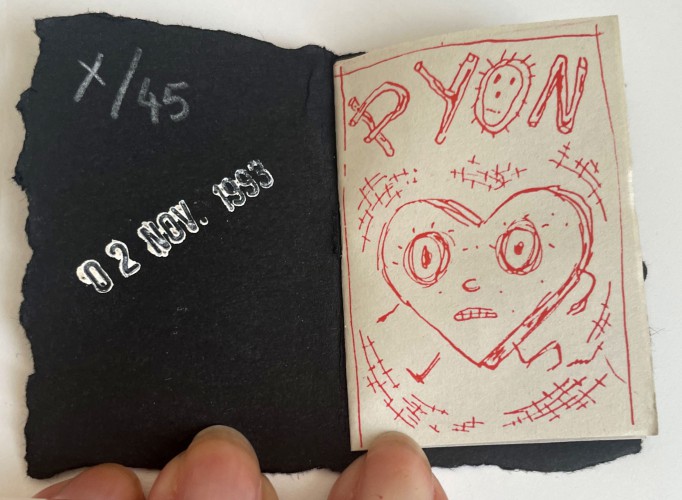 x/45
02 NOV. 1993
PYON